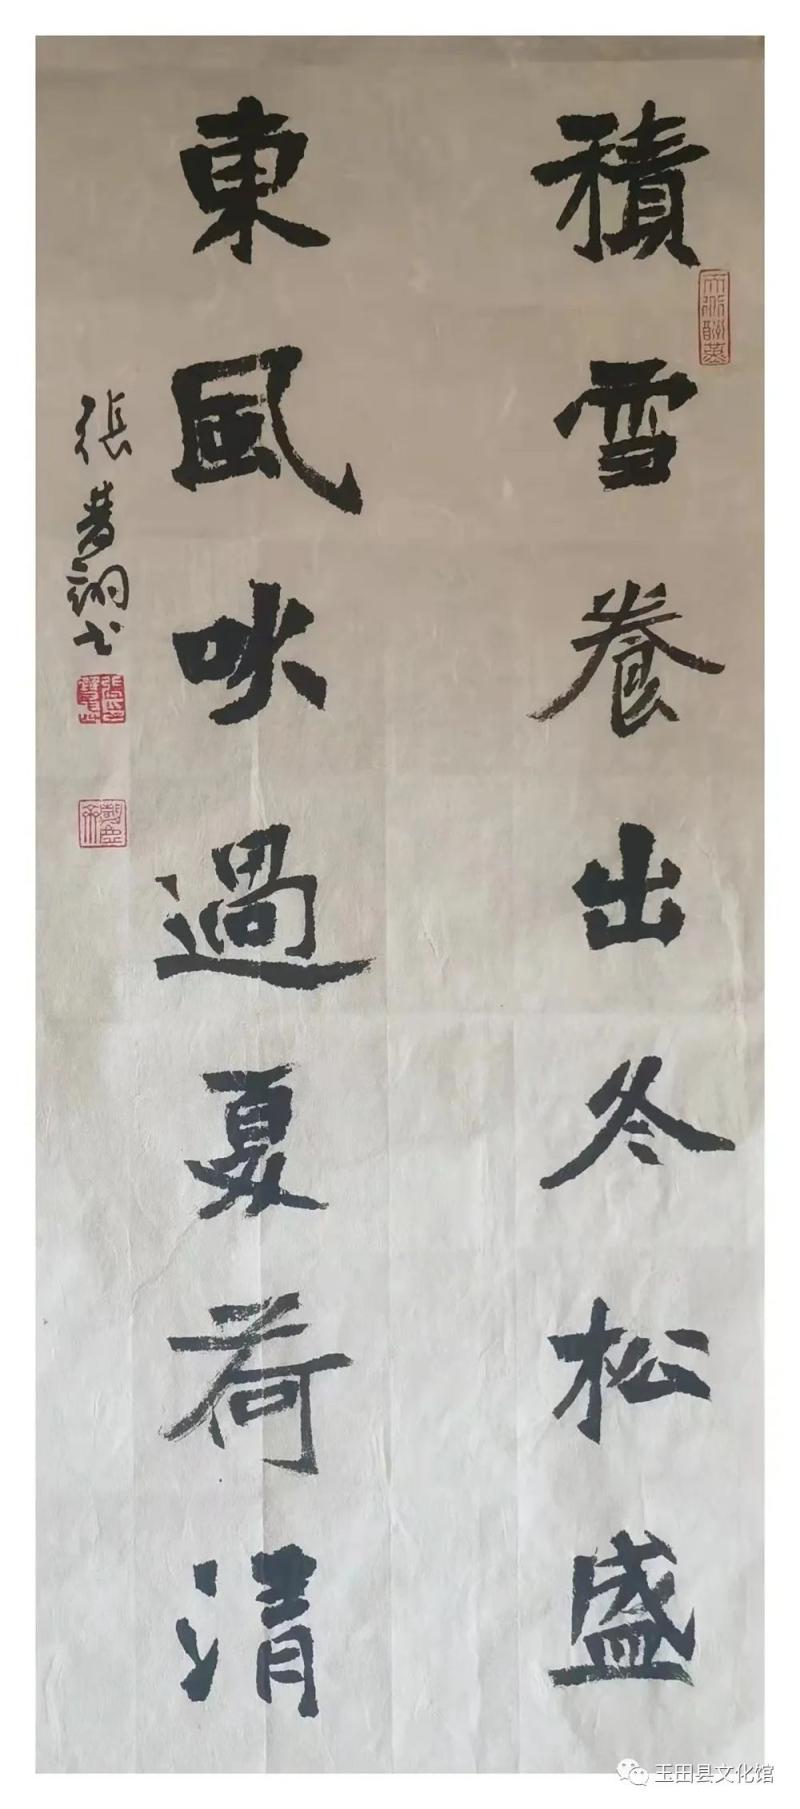 積雪養出冬松盛
東風吹過夏荷清
張
书
玉田县文化馆